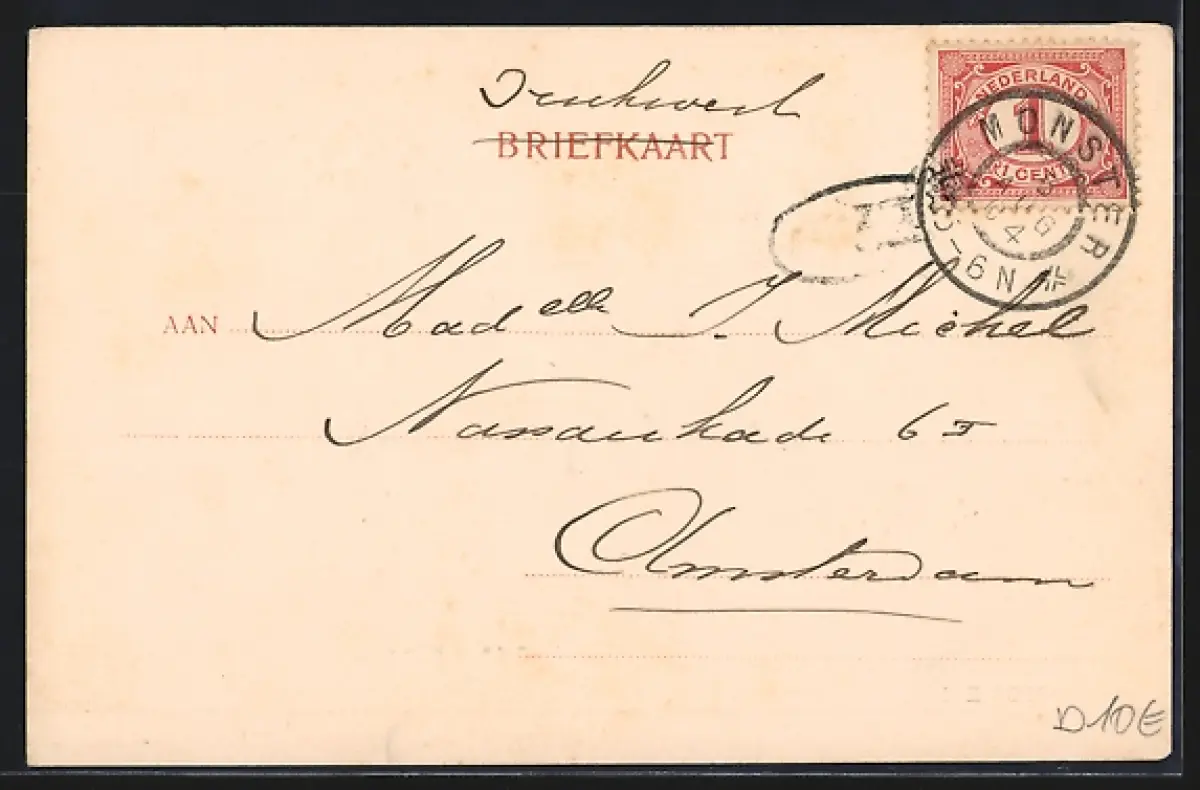 Drukwerk
BRIEFKAART
NEDERLAND
1
CENT
MONSTER
AAN Mad elle J. Michel
Nassaukade 6 I
Amsterdam
D10€